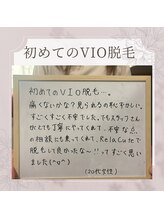 初めてのVIO脱毛
初めてのVIO脱毛…。
痛くないかな？見られるの恥ずかしい、
すごくすごく不安でした。でもスタッフさん
がとても丁寧にやってくれて、不安な点
の相談にも乗ってくれて、RelaCuteで
脱毛して良かったな〜!!ってすごく思い
ました(^o^)
(20代女性)